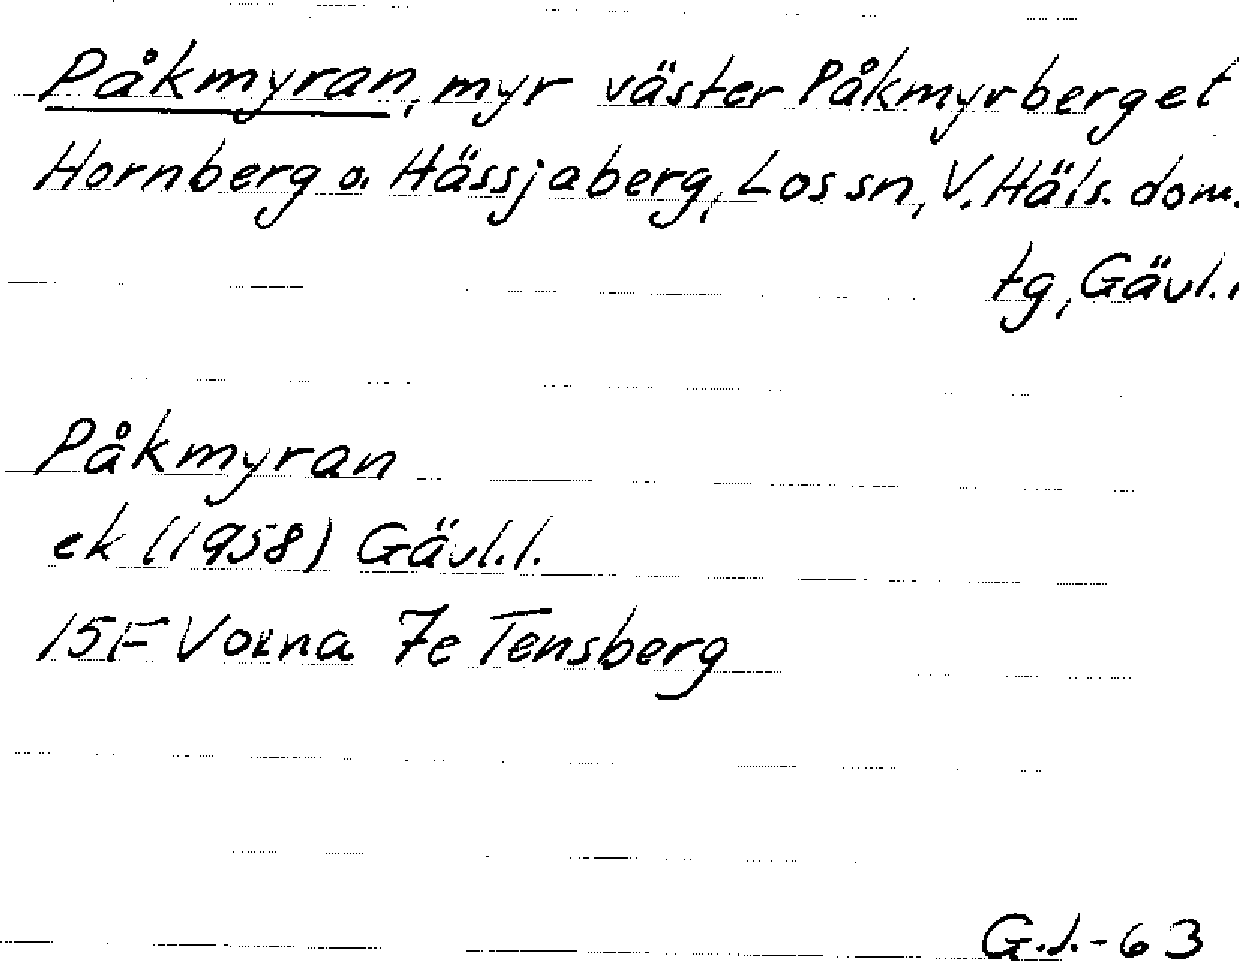 Påkmyran, myr väster Påkmyrberget
Hornberg o. Hässjaberg, Los sn, V. Häls. dom.
tg, Gävl.l
Påkmyran
ek (1958) Gävl.l.
15F Voxna 7e Tensberg
G.J.-63